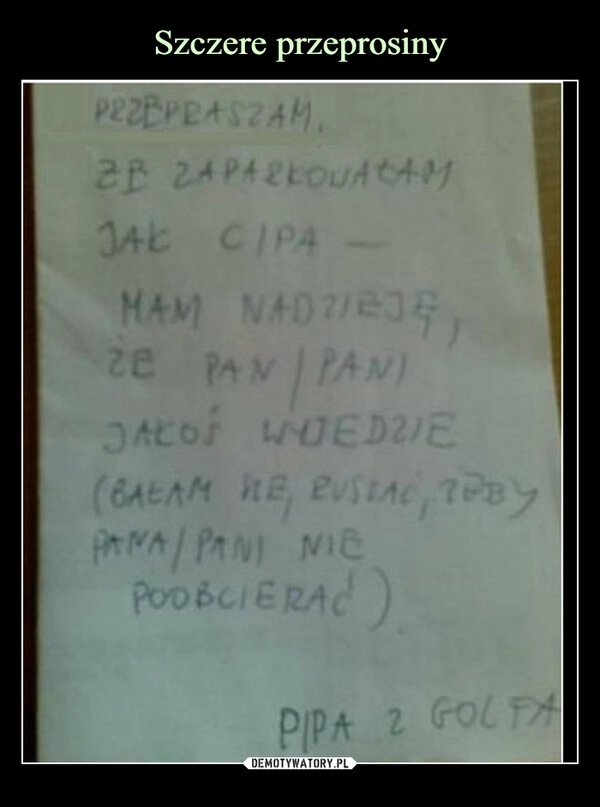 Szczere przeprosiny
PRZEPRASZAM,
ŻE ZAPARKOWAŁAM
JAK CIPA —
MAM NADZIEJĘ,
ŻE PAN / PANI
JAKOŚ WYJEDZIE
(BAŁAM SIĘ RUSZAĆ, ŻEBY
PANA / PANI NIE
POOBCIERAĆ)
PIPA Z GOLFA
DEMOTYWATORY.PL